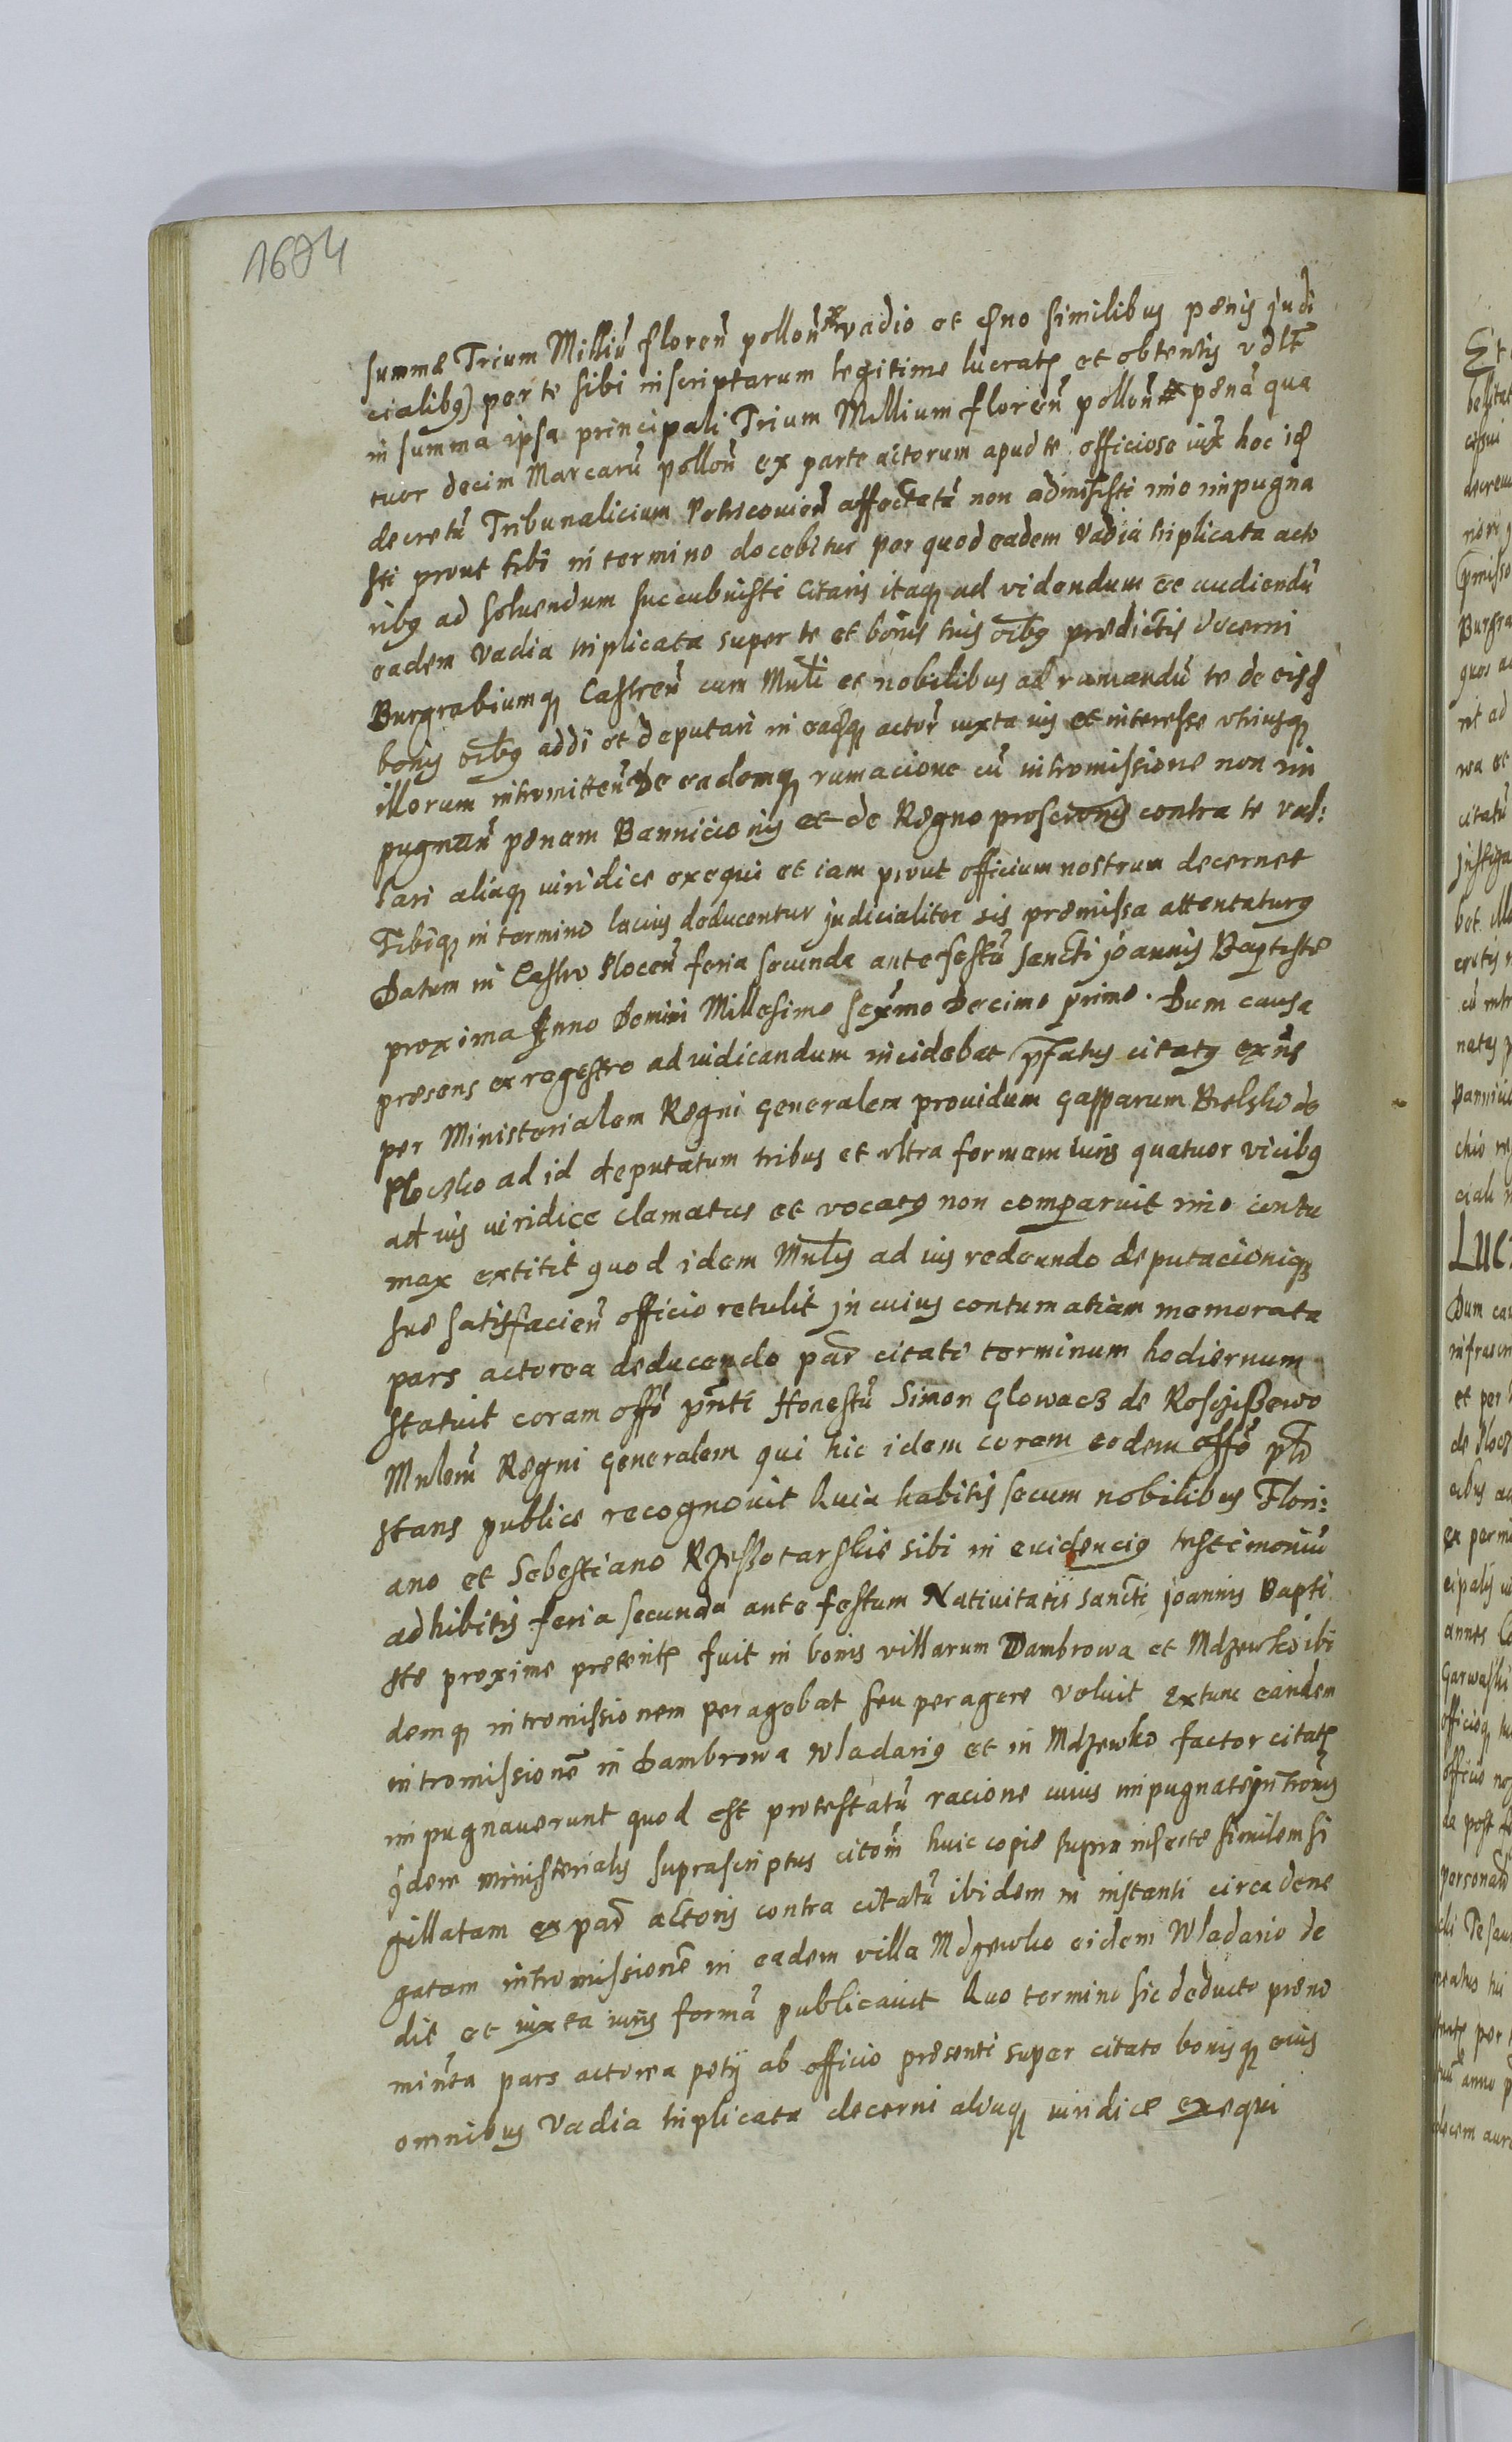 1694
summæ Trium Milliū floreñ polloñ vadio et sñe similibus pœnis judi
cialibꝫ) per te sibi inscriptarum legitime lucratꝭ et obtentis
in summa ipsa principali Trium Millium floreñ polloñ pœnā qua
tuor decim Marcarū polloñ ex parte actorum apud te officiose iux̄ hoc id
decretū Tribunalicium Petricovieñ affectatā non admisisti imo impugna
sti prout tibi in termino docebitur per quod eadem Vadia triplicata acto
ribꝫ ad soluendum succubuisti Citaris itaqꝫ ad videndum et audiendū
eadem Vadia triplicata super te et bonis tuis oībꝫ prædictis decerni
Burgrabiumqꝫ Castreñ cum Mnli et nobilibus ad rumandū te de eisd
bonis oībꝫ addi et deputari in eaqꝫ actor iuxta ius et interesse vtriusqꝫ
illorum intromitteñ De eademqꝫ rumacione cū intromissione non im
pugnañ pœnam Bannicionis et de Regno proscrionis contra te val:
lari aliaqꝫ iuridice exequi et iam prout officium nostrum decernet
Tibiqꝫ in termino lacius deducentur judicialiter sis præmissa attentaturꝫ
Datum in Castro Ploceñ feria secunda ante festū Sancti joannis Baptistæ
proxima Anno Domini Millesimo sexmo Decimo primo. Dum causa
præsens ex regestro ad iudicandum incidebat pfatus citatꝫ exñs
per Ministerialem Regni Generalem prouidum Gasparum Bielsko de
Ploczko ad id deputatum tribus et vltra formam iuris quatuor vicibꝫ
ad ius iuridice clamatus et vocatꝫ non comparuit imo contu
max extitit quod idem Mnlis ad ius redeundo deputacioniqꝫ
suæ satisfacieñ officio retulit jn cuius contumatiam memorata
pars actorea deducendo par̄ citati terminum hodiernum
statuit coram offō pn̄ti Honestū Simon Glowacz de Rosczißewo
Mnlem Regni Generalem qui hic idem coram eodem offō pn̄
stans publice recognouit Quia habitis secum nobilibus Flori:
ano et Sebestiano Rzeßotarskie sibi in euidencius testimoniū
adhibitis feria secunda ante festum Natiuitatis Sancti joannis Bapti
stæ proxime præteritꝭ fuit in bonis villarum Dambrowa et Mdzewko ibi
demqꝫ intromissionem peragebat seu peragere voluit Extunc eandem
intromissionē in Dambrowa Wladariꝫ et in Mdzewko factor citatꝭ
impugnauerunt quod est protestatū racione cuius impugnatæ jntrōnis
idem ministerialis suprascriptus citōm huic copiæ supra insertæ similem si
gillatam ex par̄ actoris contra citatū ibidem in instanti circa dene
gatam intromissionē in eadem villa Mdzewko eidem Wladario de
dit et iuxta iuris formā publicauit Quo termino sic deducto præno
minata pars actorea petÿ ab officio præsenti super citato bonisqꝫ eius
omnibus Vadia triplicata decerni aliaqꝫ iuridicæ exequi